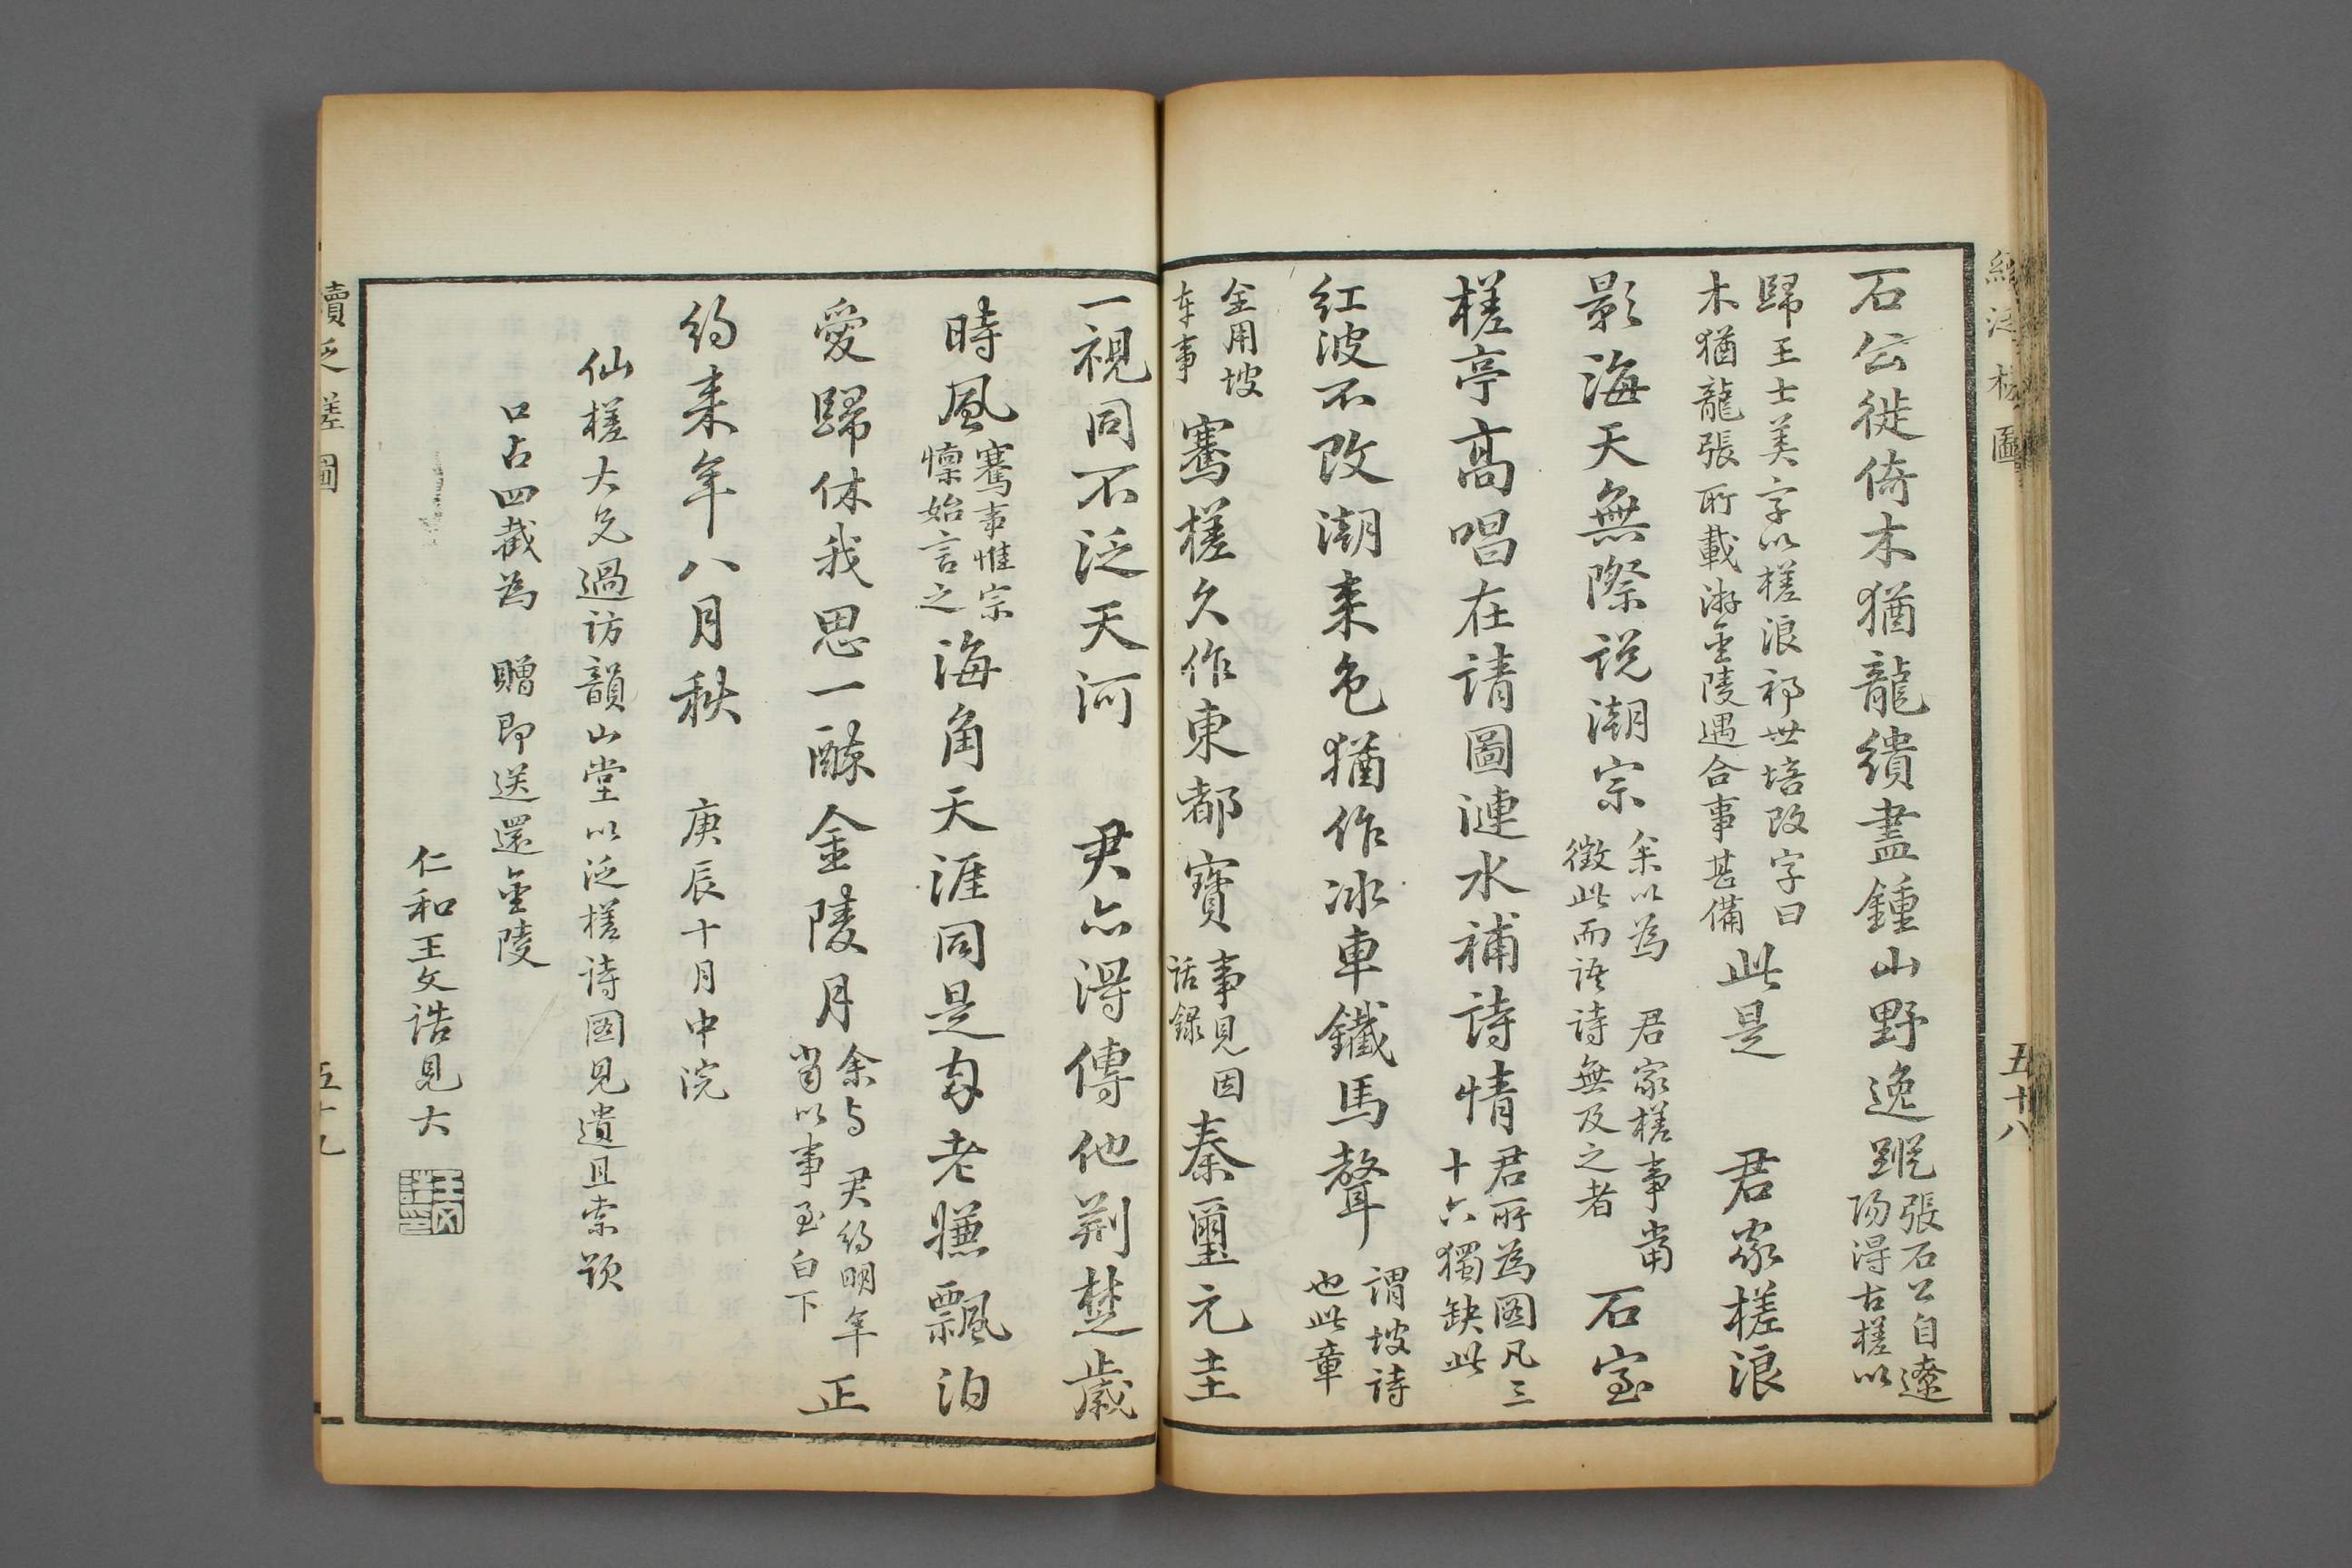 石公徙倚木猶龍繢盡鍾山野逸蹤張石公自遼陽得古槎以
歸王士美字以槎浪祁世培改字曰木猶龍張所載游金陵遇合事甚備此是 君家槎浪
影海天無際說潮宗余以為 君家槎事當徵此而諸詩無及之者 石室
槎亭高唱在請圖漣水補詩情君所為圖凡三十六獨缺此
紅波不改潮来色猶作冰車鐵馬聲謂坡詩也此章
全用坡車事騫槎久作東都寶事見因話錄秦璽元圭
一視同不泛天河 君亦得傳他荊楚歲
時風騫事惟宗懍始言之海角天涯同是客老嫌飄泊
愛歸休我思一酹金陵月余与 君約明年當以事至白下正
約来年八月秋 庚辰十月中浣
仙槎大兄過访韻山堂以泛槎诗图見遺且索题
口占四截为 贈即送還金陵
仁和王文誥見大
續泛槎圖
五十八
續泛槎圖
五十九